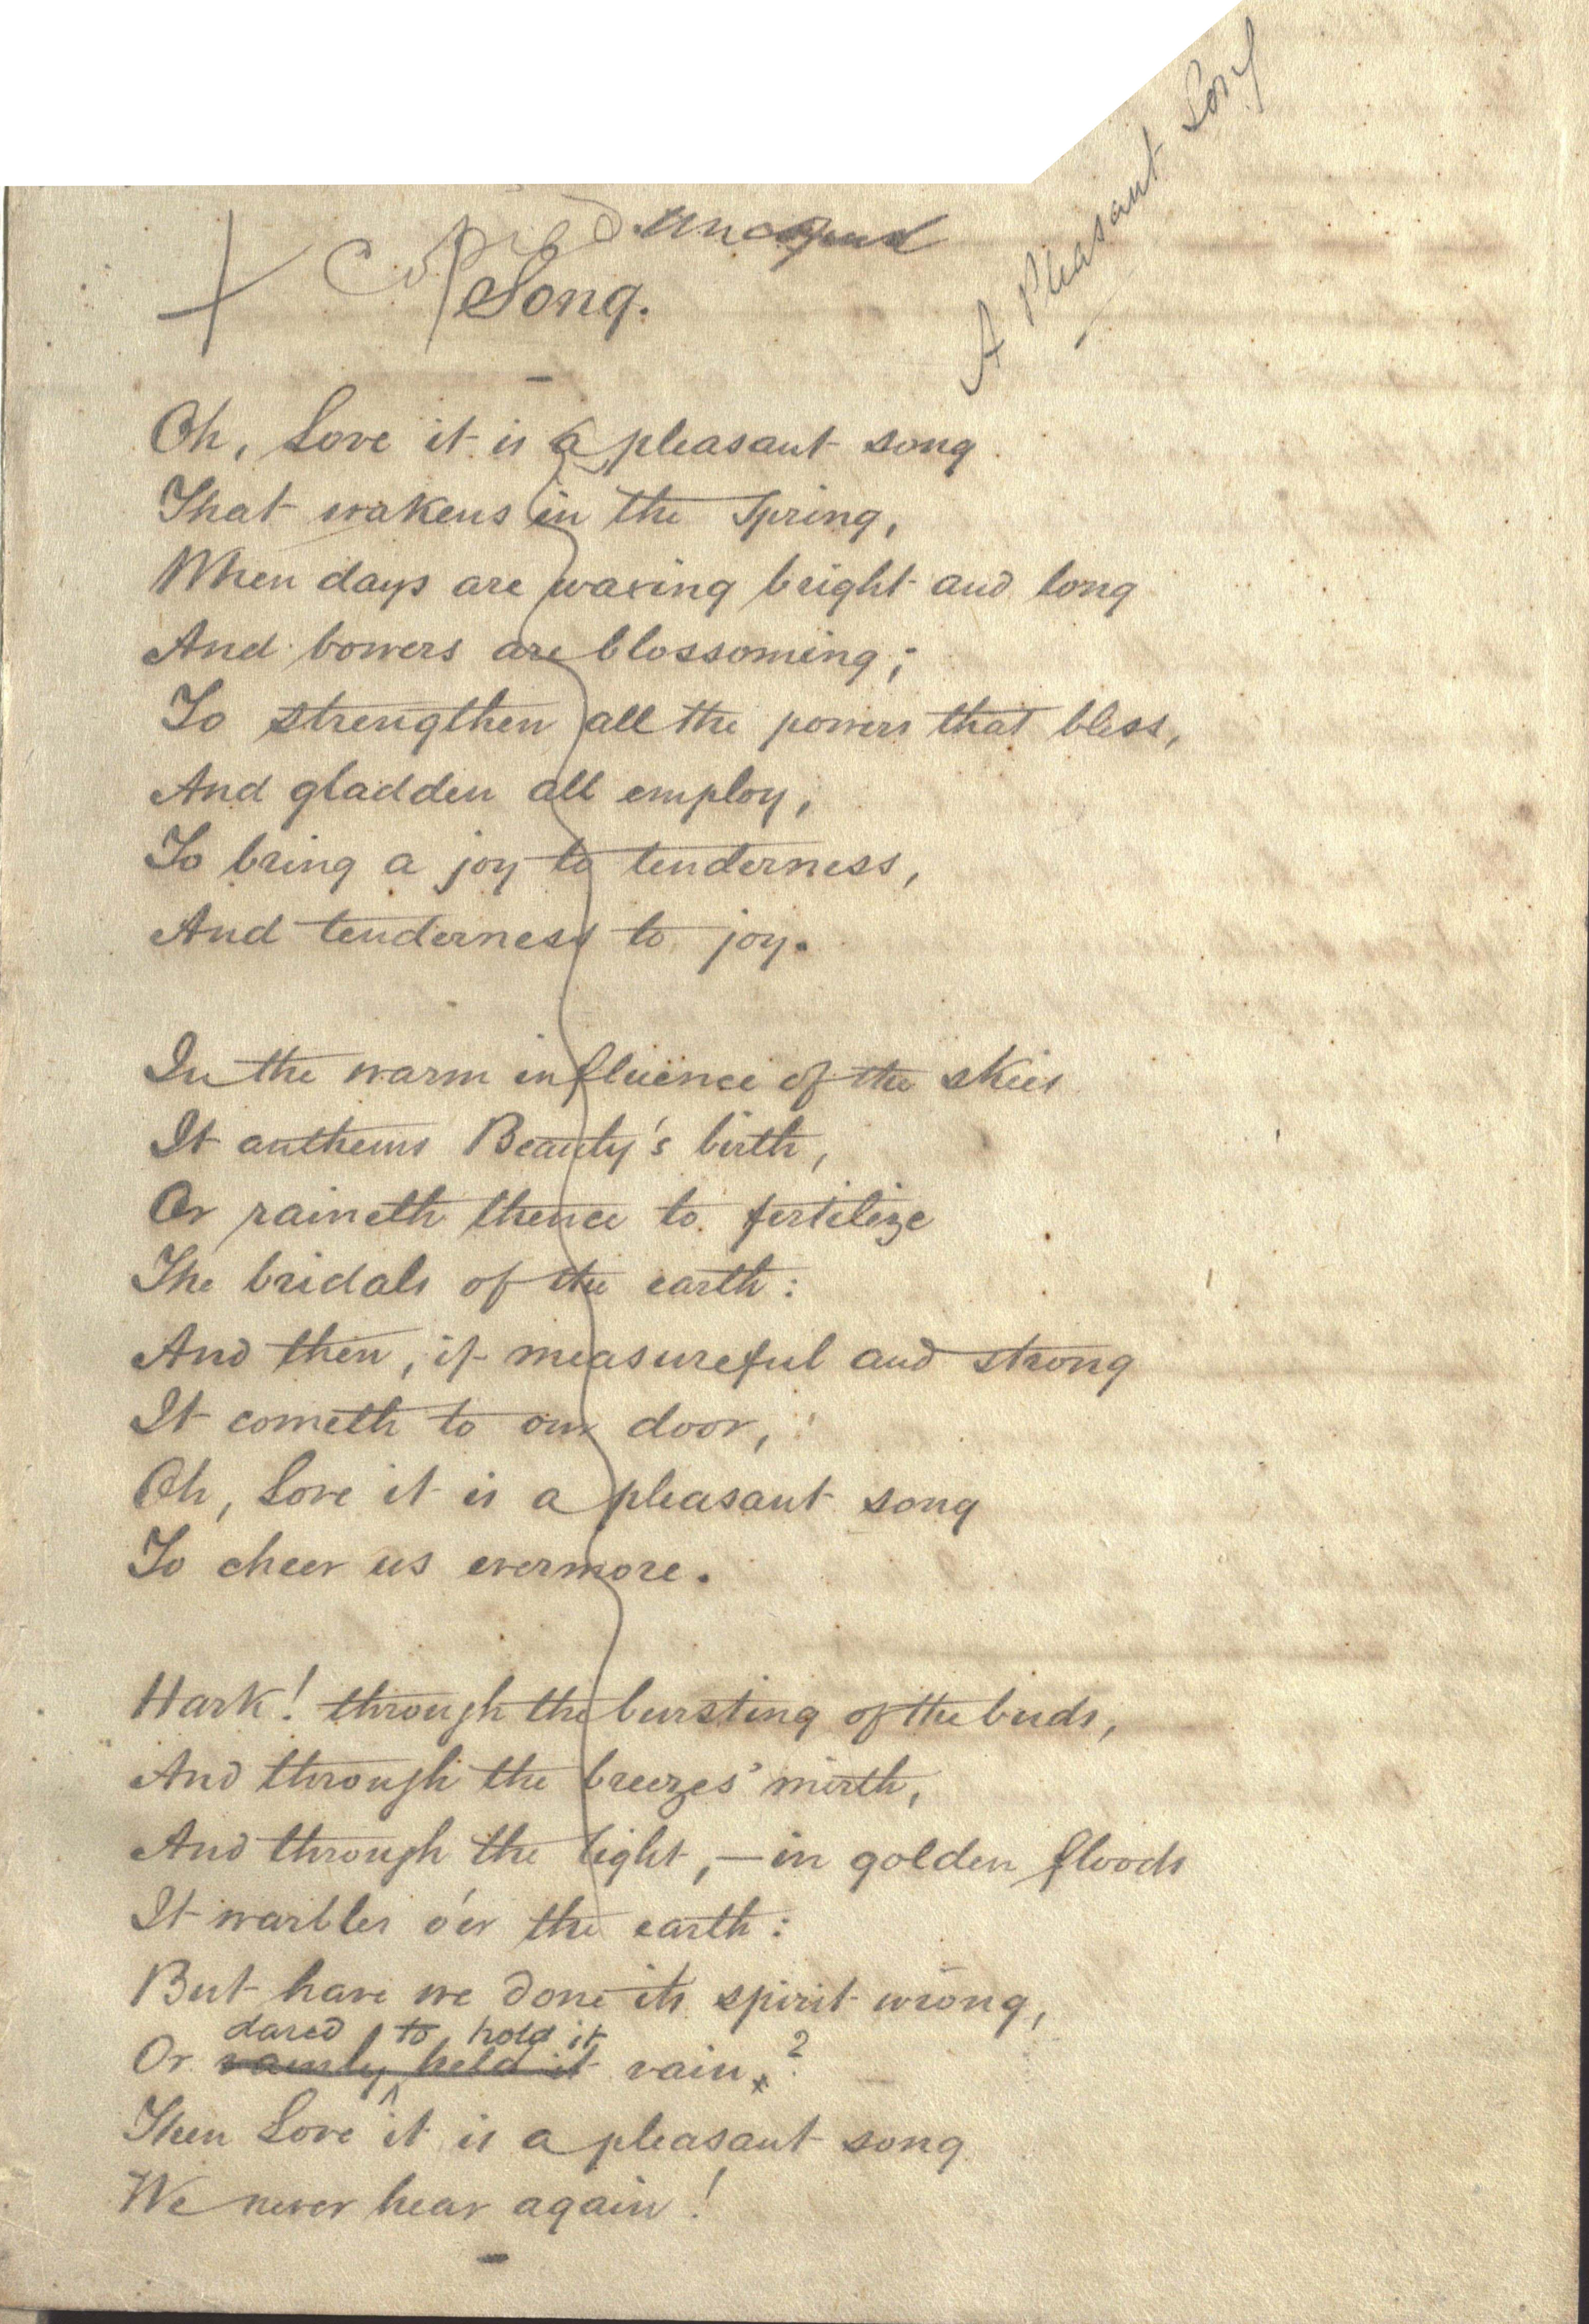 A Pleasant Song
Copied uncopied
Song.
Oh, Love it is a pleasant song
That wakens in the Spring,
When days are waxing bright and long
And bowers are blossoming;
To strengthen all the powers that bless,
And gladden all employ,
To bring a joy to tenderness,
And tenderness to joy.
In the warm influence of the skies
It anthems Beauty's birth,
Or raineth thence to fertilize
The bridals of the earth:
And then, if measureful and strong
It cometh to our door,
Oh, Love it is a pleasant song
To cheer us evermore.
Hark! through the bursting of the buds,
And through the breezes' mirth,
And through the light,—in golden floods
It warbles o'er the earth:
But have we done its spirit wrong,
dared to hold it
Or vainly held it vain?
Then Love it is a pleasant song
We never hear again!